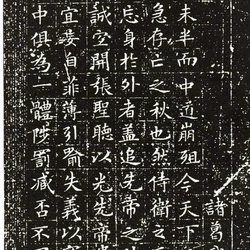 諸葛
未半而中道崩殂今天下
急存亡之秋也然侍衛之
忘身於外者蓋追先帝之
誠宜開張聖聽以光先帝
宜妄自菲薄引喻失義以
中俱為一體陟罰臧否不